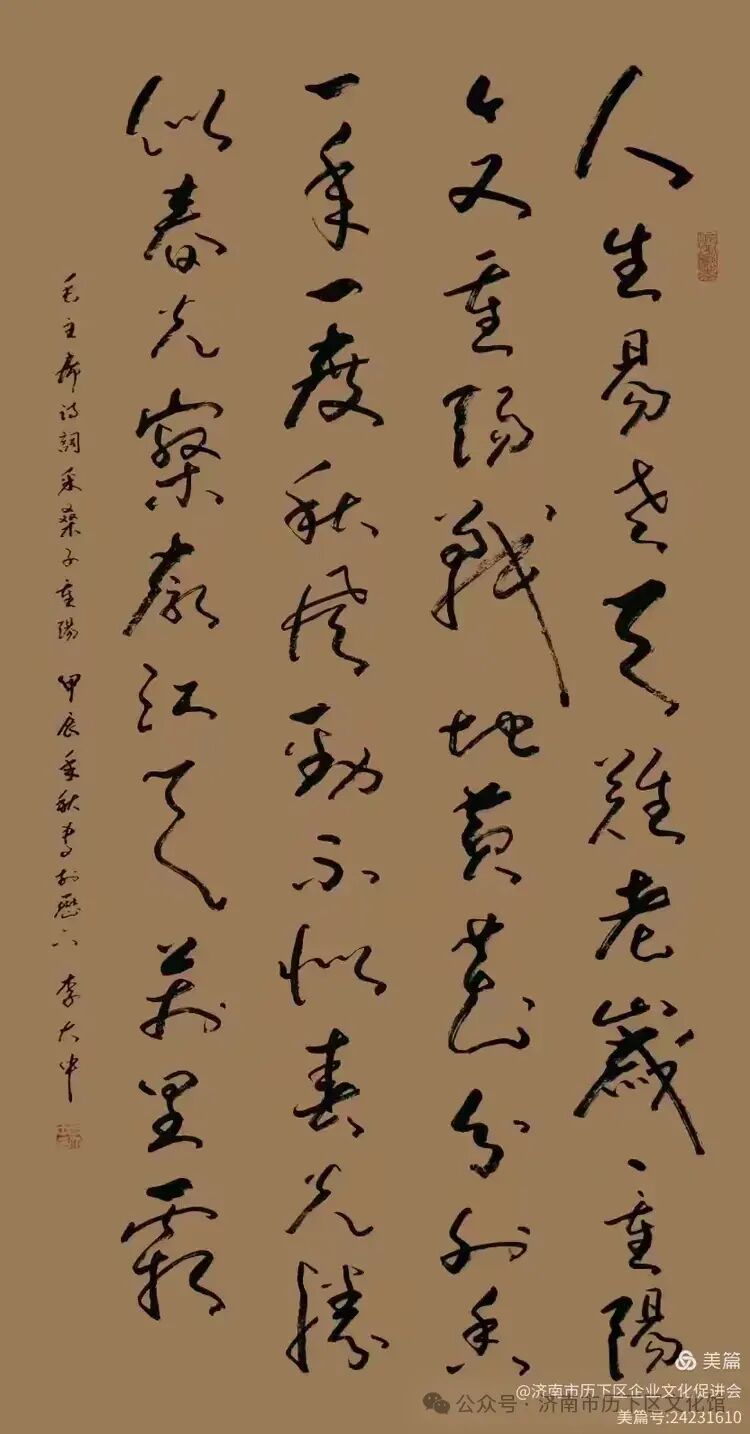 人生易老天難老歲々重陽
今又重陽戰地黃花分外香
一年一度秋風勁不似春光勝
似春光寥廓江天萬里霜
毛主席詩詞采桑子重陽 甲辰季秋書於歷下 李大中
美篇
@济南市历下区企业文化促进会
公众号·济南市历下区文化馆
美篇号:24231610